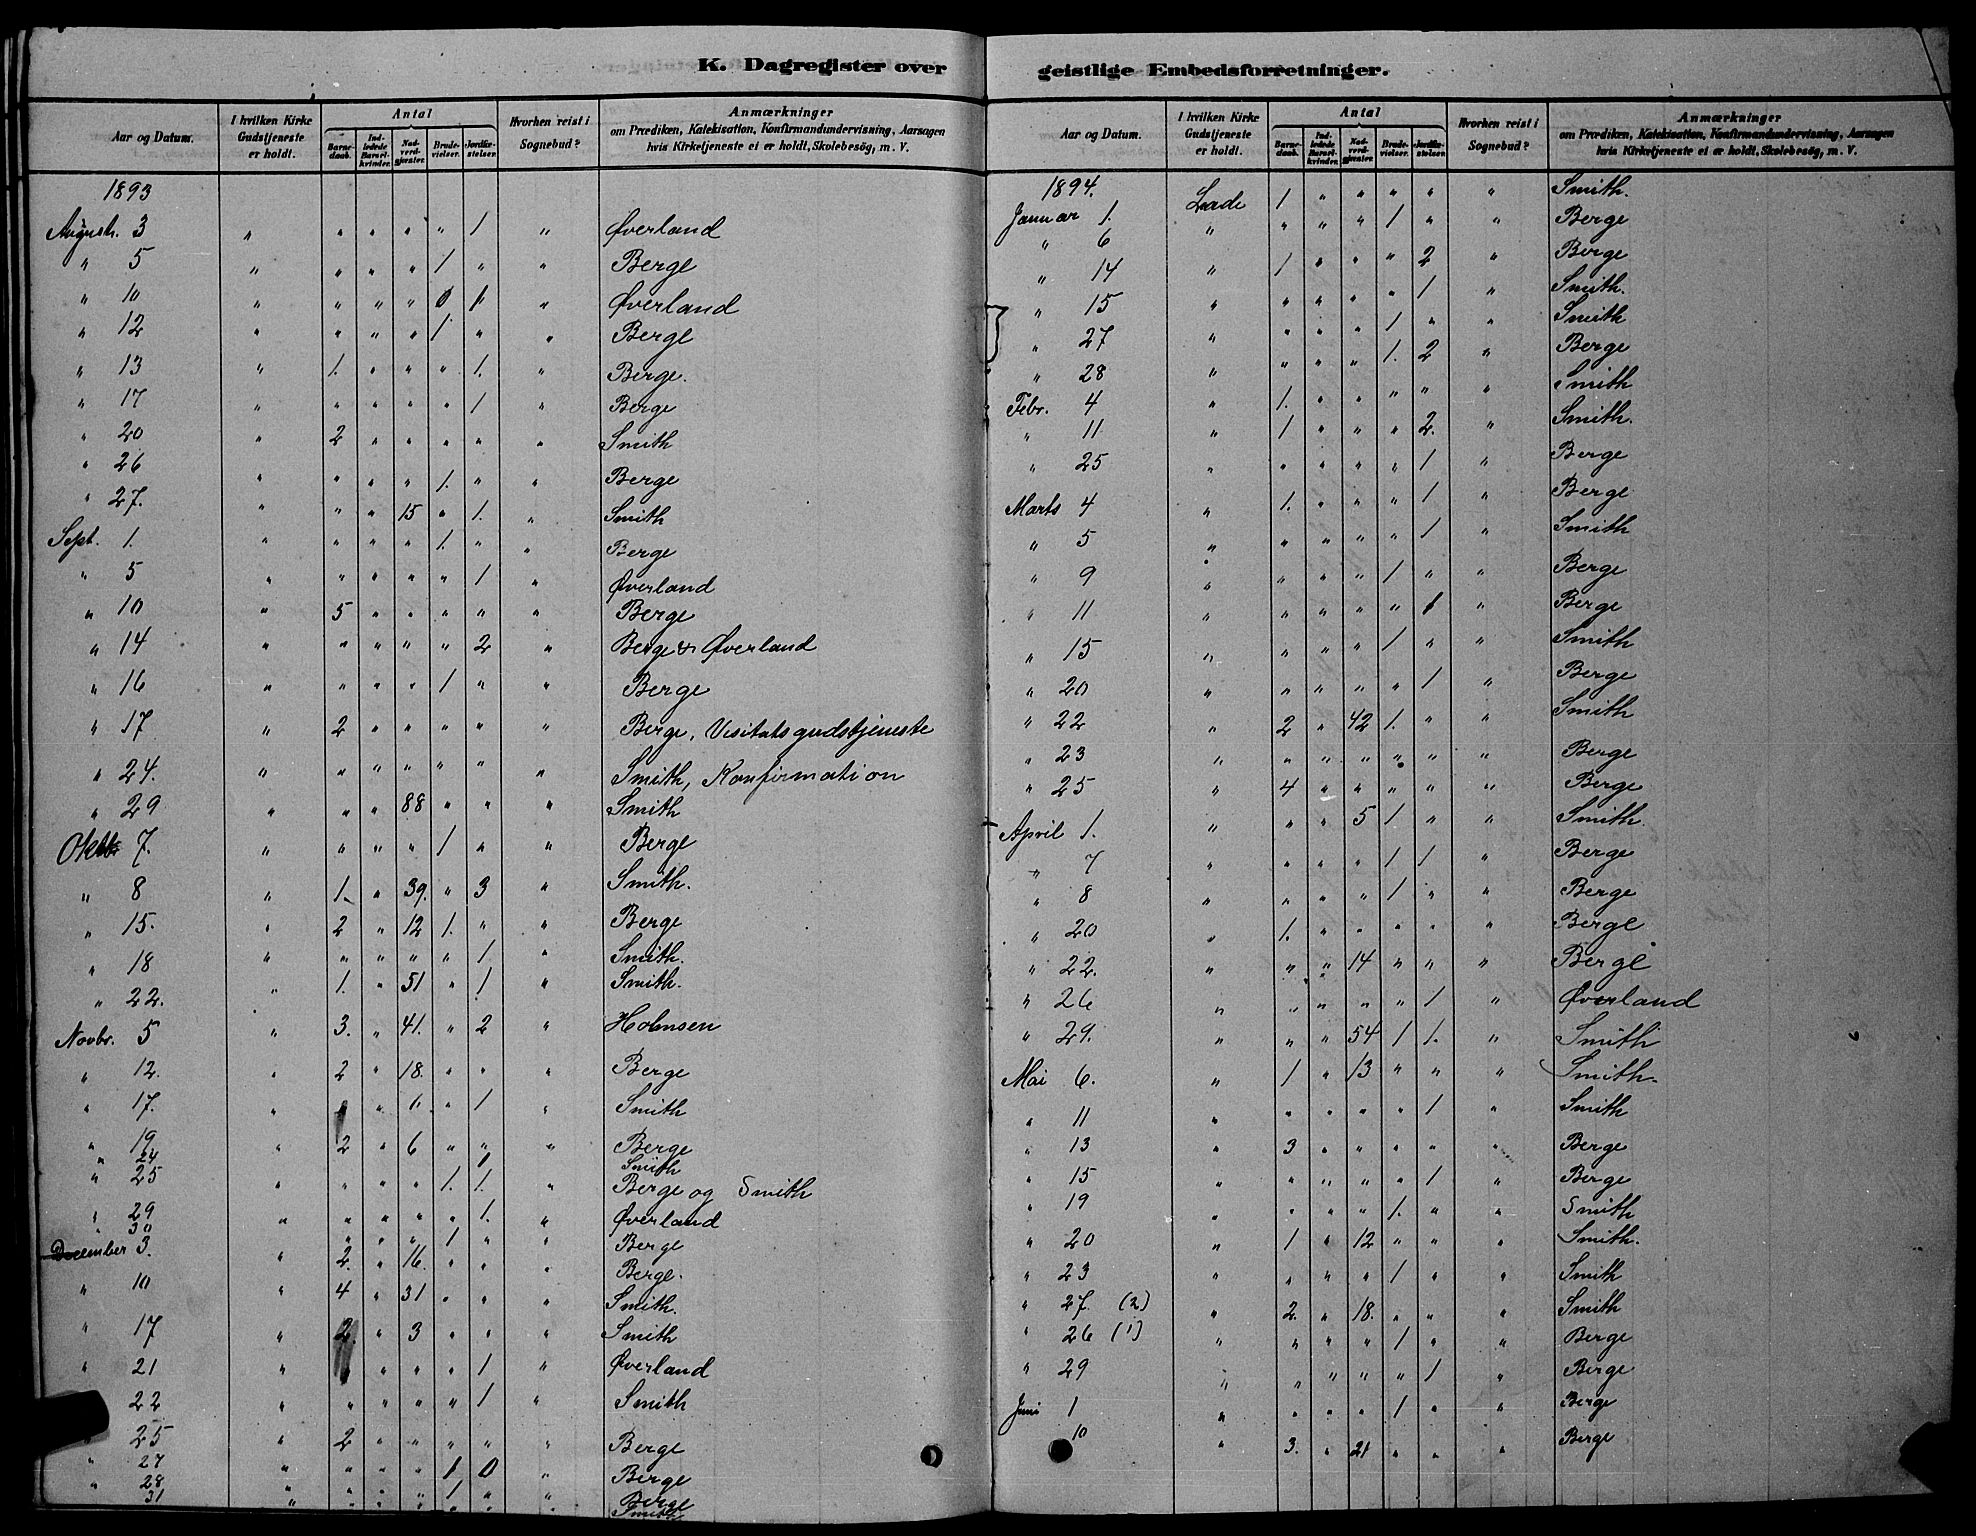 K. Dagregister over
Aar og Datum. | I hvilken Kirke Gudstjeneste er holdt. | Antal | Barnedaab. | Indledede Barselkvinder. | Nadverdgjæster. | Brudevielser. | Jordfæstelser. | Hvorhen reist i Sognebud? | Anmærkninger om Prædiken, Katekisation, Konfirmandundervisning, Aarsagen hvis Kirketjeneste ei er holdt, Skolebesög, m. V.
1893
August. 3 " " " " " 1 " Øverland
" 5 " " " " 1 " " Berge
" 10 " " " " 0 1 " Øverland
" 12 " " " " 1. " " Berge
" 13 " 1. " " " 1. " Berge.
" 17 " " " " " 1 " Berge
" 20 " 2 " " " " " Smith
" 26 " " " " 1. " " Berge
" 27. " " " 15 " 1. " Smith
Sept. 1. " " " " 1. " " Berge
" 5 " " " " " 1 " Øverland
" 10 " 5 " " " " " Berge
" 14 " " " " " 2 " Berge & Øverland
" 16 " " " " 1 " " Berge
" 17 " 2 " " " " " Berge, Visitatsgudstjeneste
" 24. " " " " " " " Smith, Konfirmation
" 29 " " " 88 " " " Smith
Oktbr 7. " " " " 1 " " Berge
" 8 " 1. " 39. " 3 " Smith.
" 15. " 2 " 12 1. " " Berge
" 18 " " " " " 1 " Smith.
" 22. " 1. " 51 " 1 " Smith.
Novbr. 5 " 3. " 41. " 2 " Holmsen
" 12. " 2 " 18. " " " Berge
" 17. " " " " 1 " Smith
" 19 " 2 " 6 " " " Berge
" 24 Smith
" 25 " " " " 1. 1. " Berge og Smith
" 29 " " " " " 1. " Øverland
" 30 " " " 1 " Berge
December 3. " 2. " 16. " " " Berge.
" 10 " 4 " 31 " " " Smith.
" 17 " 2. " 3 " " " Smith
" 21 " " " " 1 " Øverland
22 " " " " " 1 " Smith
25 " 2 " " " " " Berge
" 27 " " " " 1 0 " Berge
" 28 " " " " 1 " " Berge
31 " " " " " " " Smith
geistlige Embedsforretninger.
Aar og Datum. | I hvilken Kirke Gudstjeneste er holdt. | Antal | Barnedaab. | Indledede Barselkvinder. | Nadverdgjæster. | Brudevielser. | Jordfæstelser. | Hvorhen reist i Sognebud? | Anmærkninger om Prædiken, Katekisation, Konfirmandundervisning, Aarsagen hvis Kirketjeneste ei er holdt, Skolebesög, m. V.
1894.
Januar 1. Lade 1 " " " " " Smith.
" 6 " " " " 1 " " Berge
" 14 " 1 " " " 2 " Berge
" 15 " " " " " 1 " Smith.
" 27 " " " " 1 " " Smith
" 28 " " " " 1. 2 " Berge
Febr. 4 " 1. " " " " " Smith
" 11 " 1 " " " 2. " Smith.
" 25 " " " " " 1 " Berge
Marts 4 " 1. " " " 1 " Berge
" 5 " " " " " 1 Smith
" 9 " " " " 1 " " Berge
" 11 " " " " " 1 " Berge
" 15 " " " " 1 " " Smith
" 20 " " " " " 1 " Berge
" 22 " 2 " 42 1. " " Smith
" 23 " " " " " " " Berge
" 25 " 4 " " " " " Berge
April 1. " " " 5 1 " " Smith.
" 7 " " " " 1 1 " Berge
" 8 " " " " 1 " " Berge
" 20 " 1. " " " " " Berge
" 22. " " " 14 " " " Berge
" 26 " " " " " 1 " Øverland
" 29. " " " 54 1 1. " Smith
Mai 6. " 1 " 13 " " " Smith.
" 11 " " " " " 1 " Smith
" 13 " 3 " " " " " Berge
" 15 " " " " " 1 " Berge
" 19 " " " " 1. " " Smith
" 20 " 1 " 12 " " " Smith.
" 23 " " " " 1 " " Smith
" 27. (2) " 2. " 18. " " " Smith
" 26 (1) " " " " 1 " " Berge
" 29 " " " " " 1 " Berge
Juni 1 " " " " 1 " " Berge
10 " 3. " 21 " " " Berge